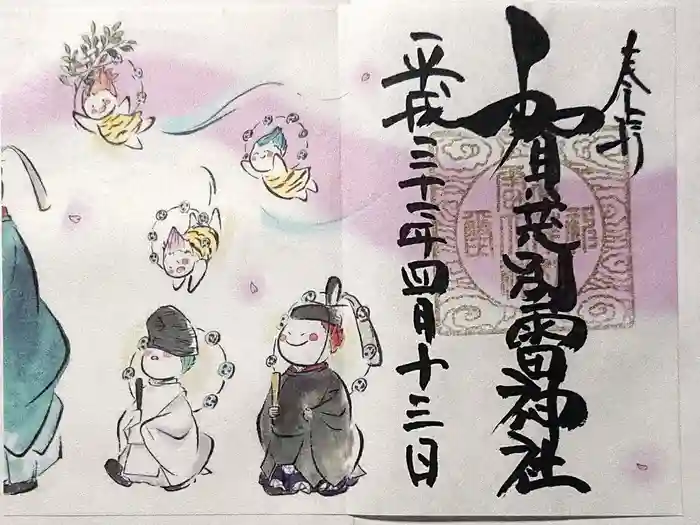 奉拝
賀茂別雷神社
平成三十一年四月十三日